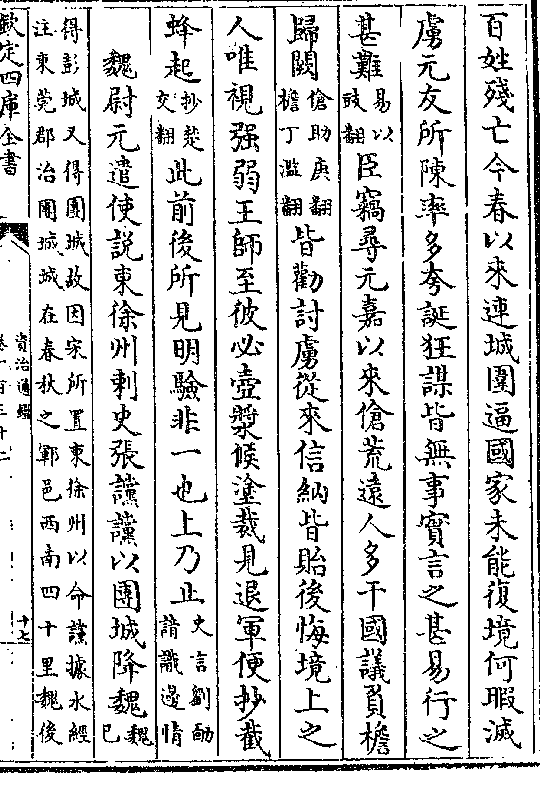 百姓殘亡今春以來連城圍逼國家未能復境何暇滅
虜元友所陳率多夸誕狂謀皆無事實言之甚易行之
甚難易以豉翻臣竊尋元嘉以來傖荒遠人多干國議負檐
歸闕傖助庚翻檐丁濫翻皆勸討虜從來信納皆貽後悔境上之
人唯視强弱王師至彼必壺漿候塗裁見退軍便抄截
蜂起抄楚交翻此前後所見明驗非一也上乃止史言劉勔諳識邊情
魏尉元遣使說東徐州刺史張讜讜以團城降魏魏已
得彭城又得團城故因宋所置東徐州以命讜據水經
注東莞郡治團城城在春秋之鄆邑西南四十里魏後
欽定四庫全書
資治通鑑
卷一百三十二
十七